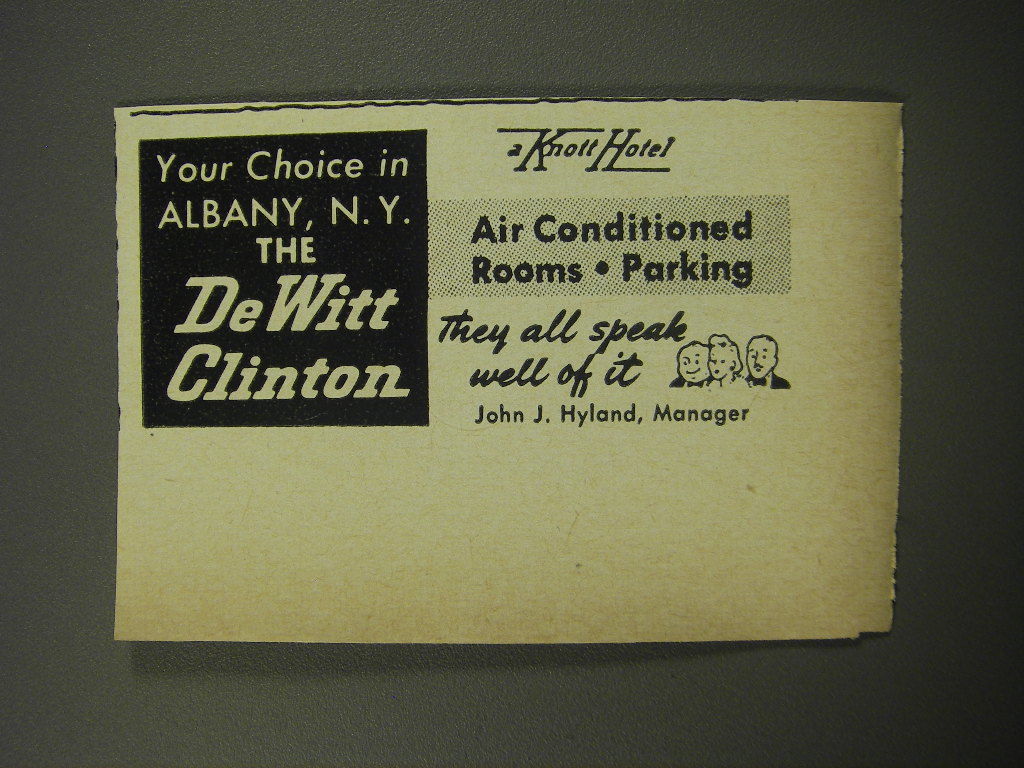 Your Choice in
ALBANY, N. Y.
THE
DeWitt
Clinton
a Knott Hotel
Air Conditioned
Rooms • Parking
They all speak
well of it
John J. Hyland, Manager